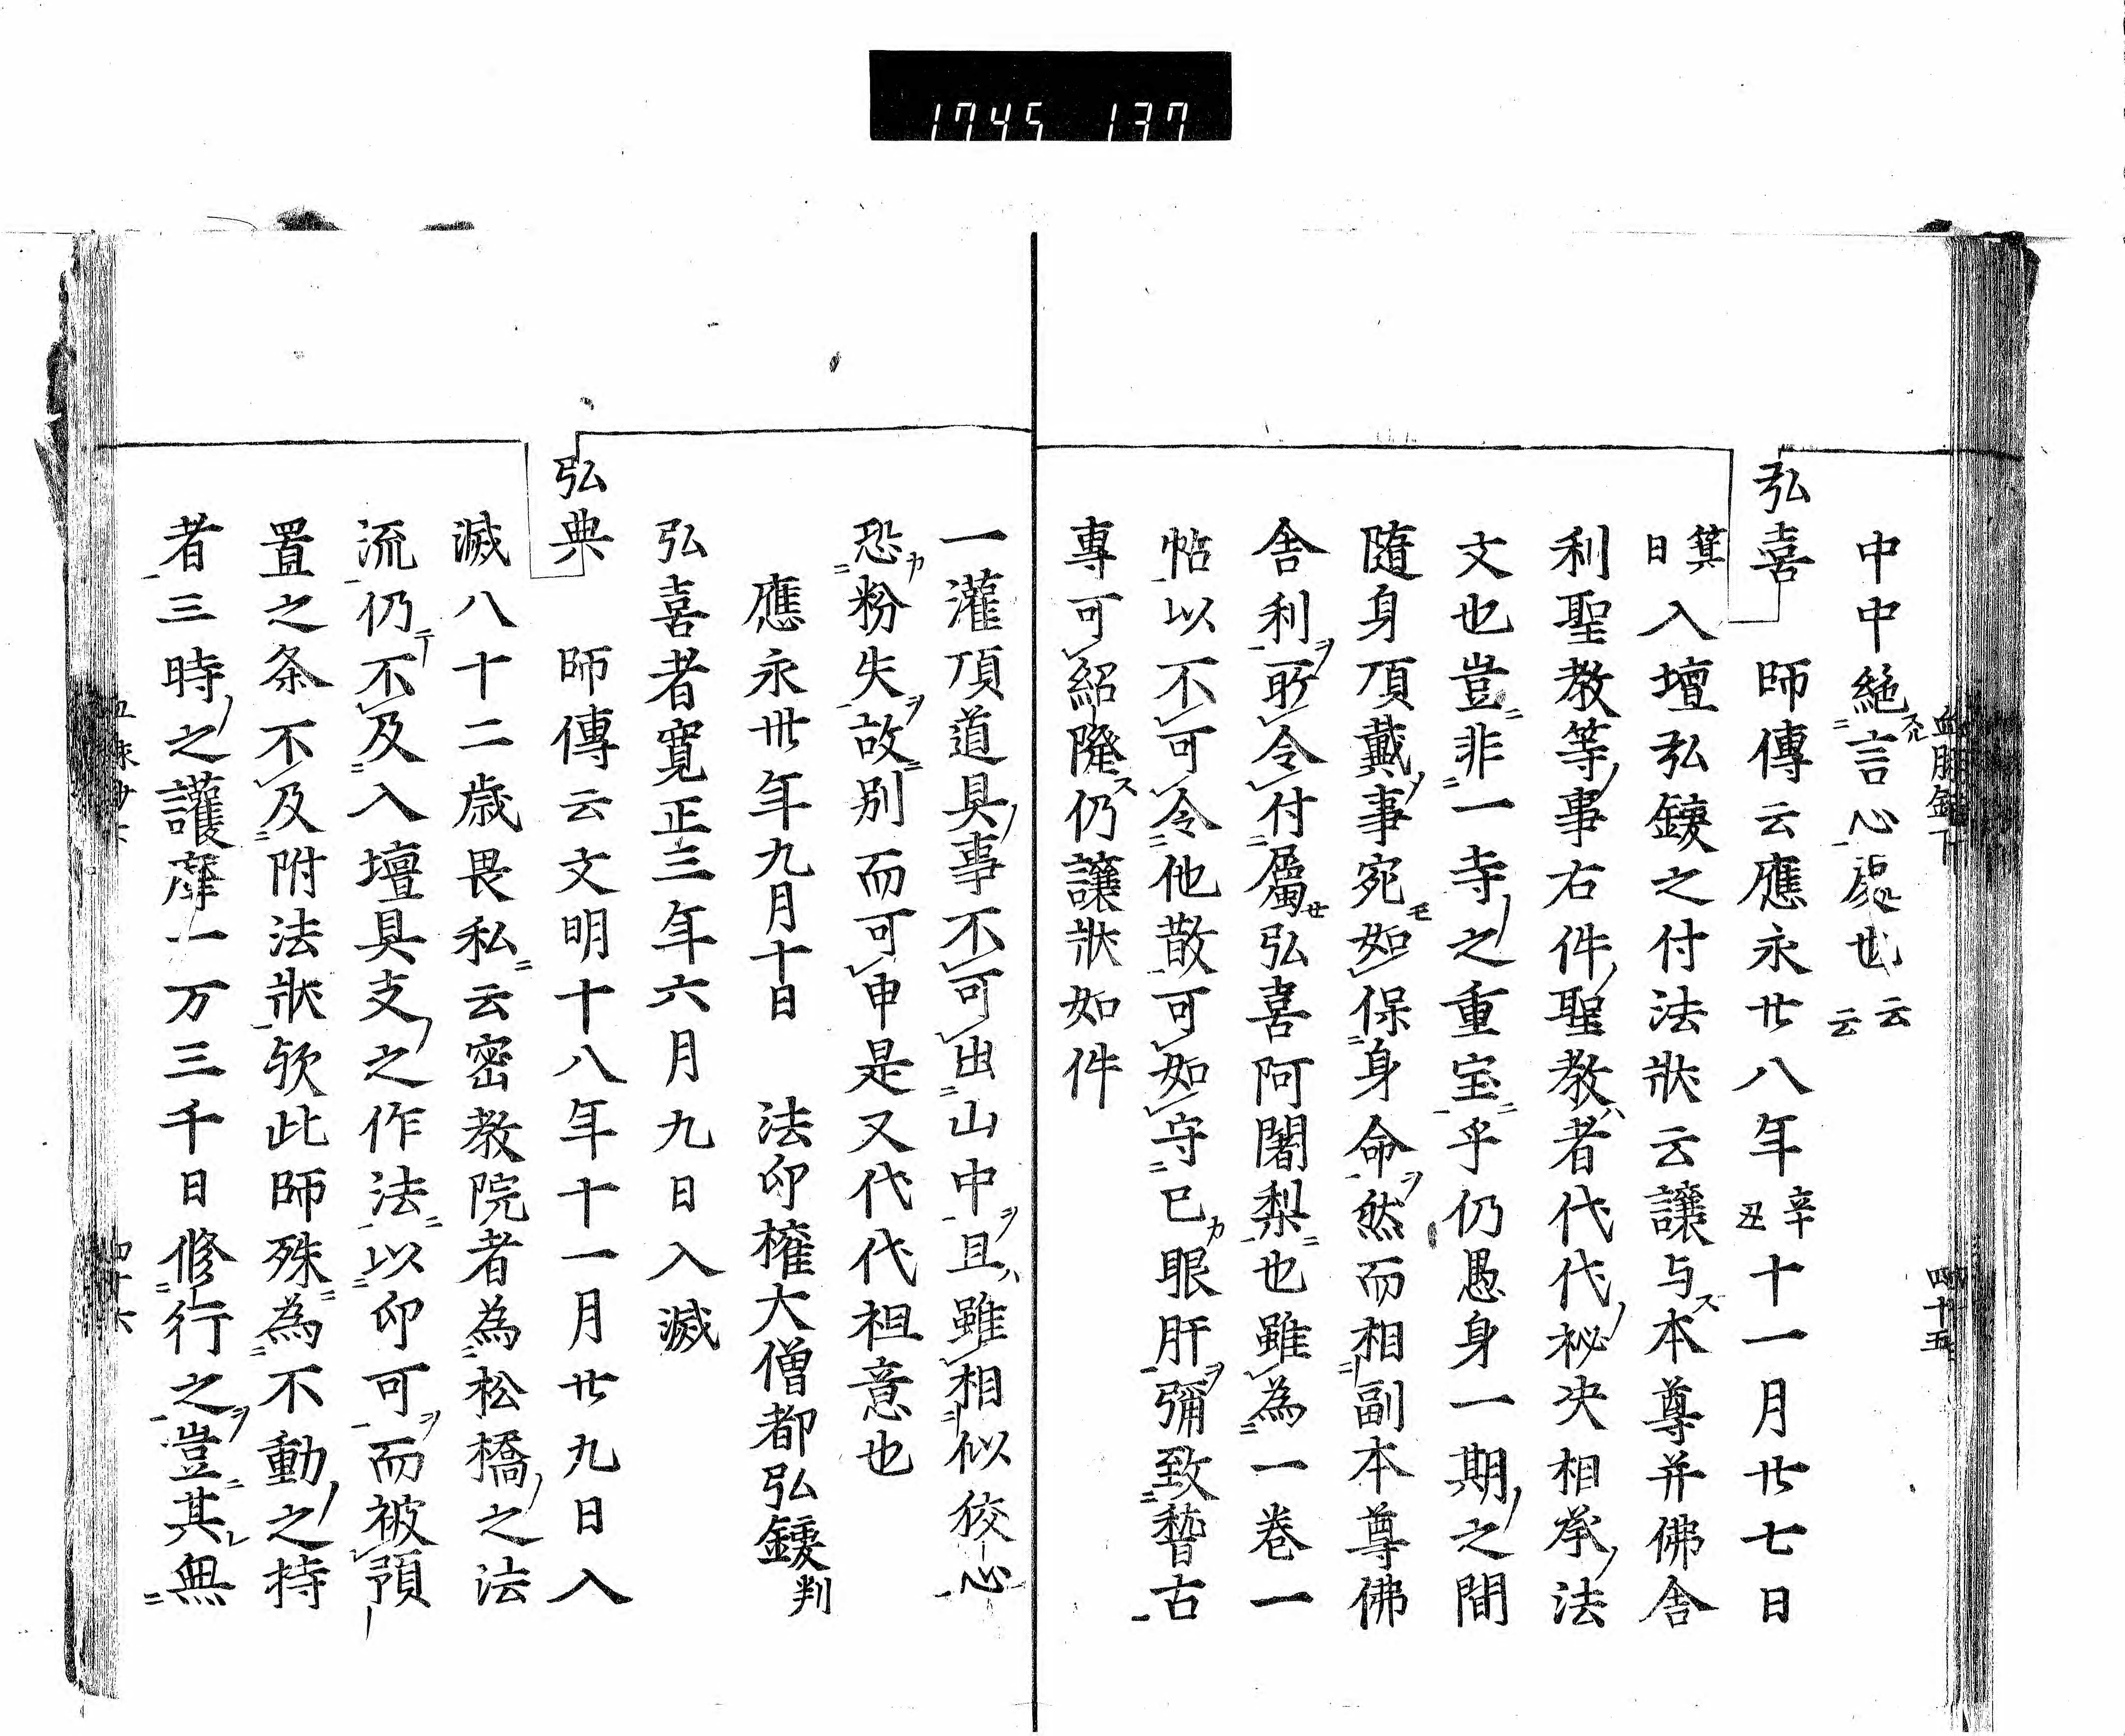 1745 137
血脉鈔下 四十五
中中絶言心處也云云
弘喜 師傳云應永廿八年辛丑十一月廿七日
箕日入壇弘鑁之付法狀云讓与本尊并佛舍
利聖教等事右件聖教者代代秘决相承法
文也豈非一寺之重宝乎仍愚身一期之間
隨身頂戴事宛如保身命然而相副本尊佛
舍利所令付屬弘喜阿闍梨也雖為一卷一
帖以不可令他散可如守已眼肝彌致誓古
專可紹隆仍讓狀如件
一灌頂道具事不可出山中且雖相似狡心
恐粉失故別而可申是又代代祖意也
應永卅年九月十日 法印權大僧都弘鑁判
弘喜者寛正三年六月九日入滅
弘典 師傳云文明十八年十一月廿九日入
滅八十二歳畏私云密教院者為松橋之法
流仍不及入壇具支之作法以印可而被預
置之条不及附法狀欤此師殊為不動之持
者三時之護摩一万三千日修行之豈其無